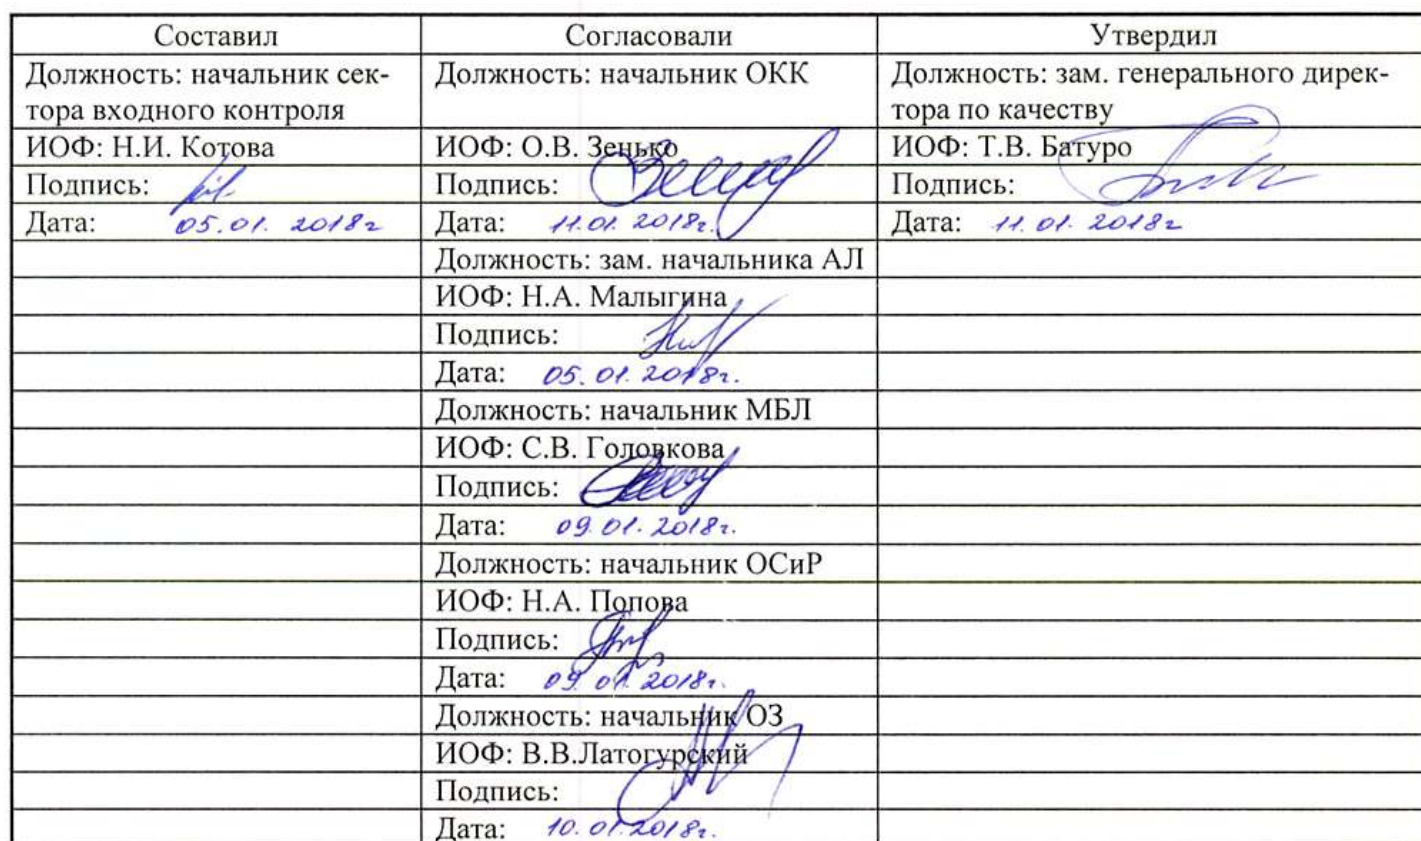 Составил Согласовали Утвердил
Должность: начальник сек- Должность: начальник ОКК Должность: зам. генерального дирек-
тора входного контроля тора по качеству
ИОФ: Н.И. Котова ИОФ: О.В. Зенько ИОФ: Т.В. Батуро
Подпись: Подпись: Подпись:
Дата: 05.01. 2018г Дата: 11.01. 2018г. Дата: 11. 01. 2018г
Должность: зам. начальника АЛ
ИОФ: Н.А. Малыгина
Подпись:
Дата: 05. 01. 2018г.
Должность: начальник МБЛ
ИОФ: С.В. Головкова
Подпись:
Дата: 09. 01. 2018г.
Должность: начальник ОСиР
ИОФ: Н.А. Попова
Подпись:
Дата: 09 01 2018г.
Должность: начальник ОЗ
ИОФ: В.В.Латогурский
Подпись:
Дата: 10. 01.2018г.